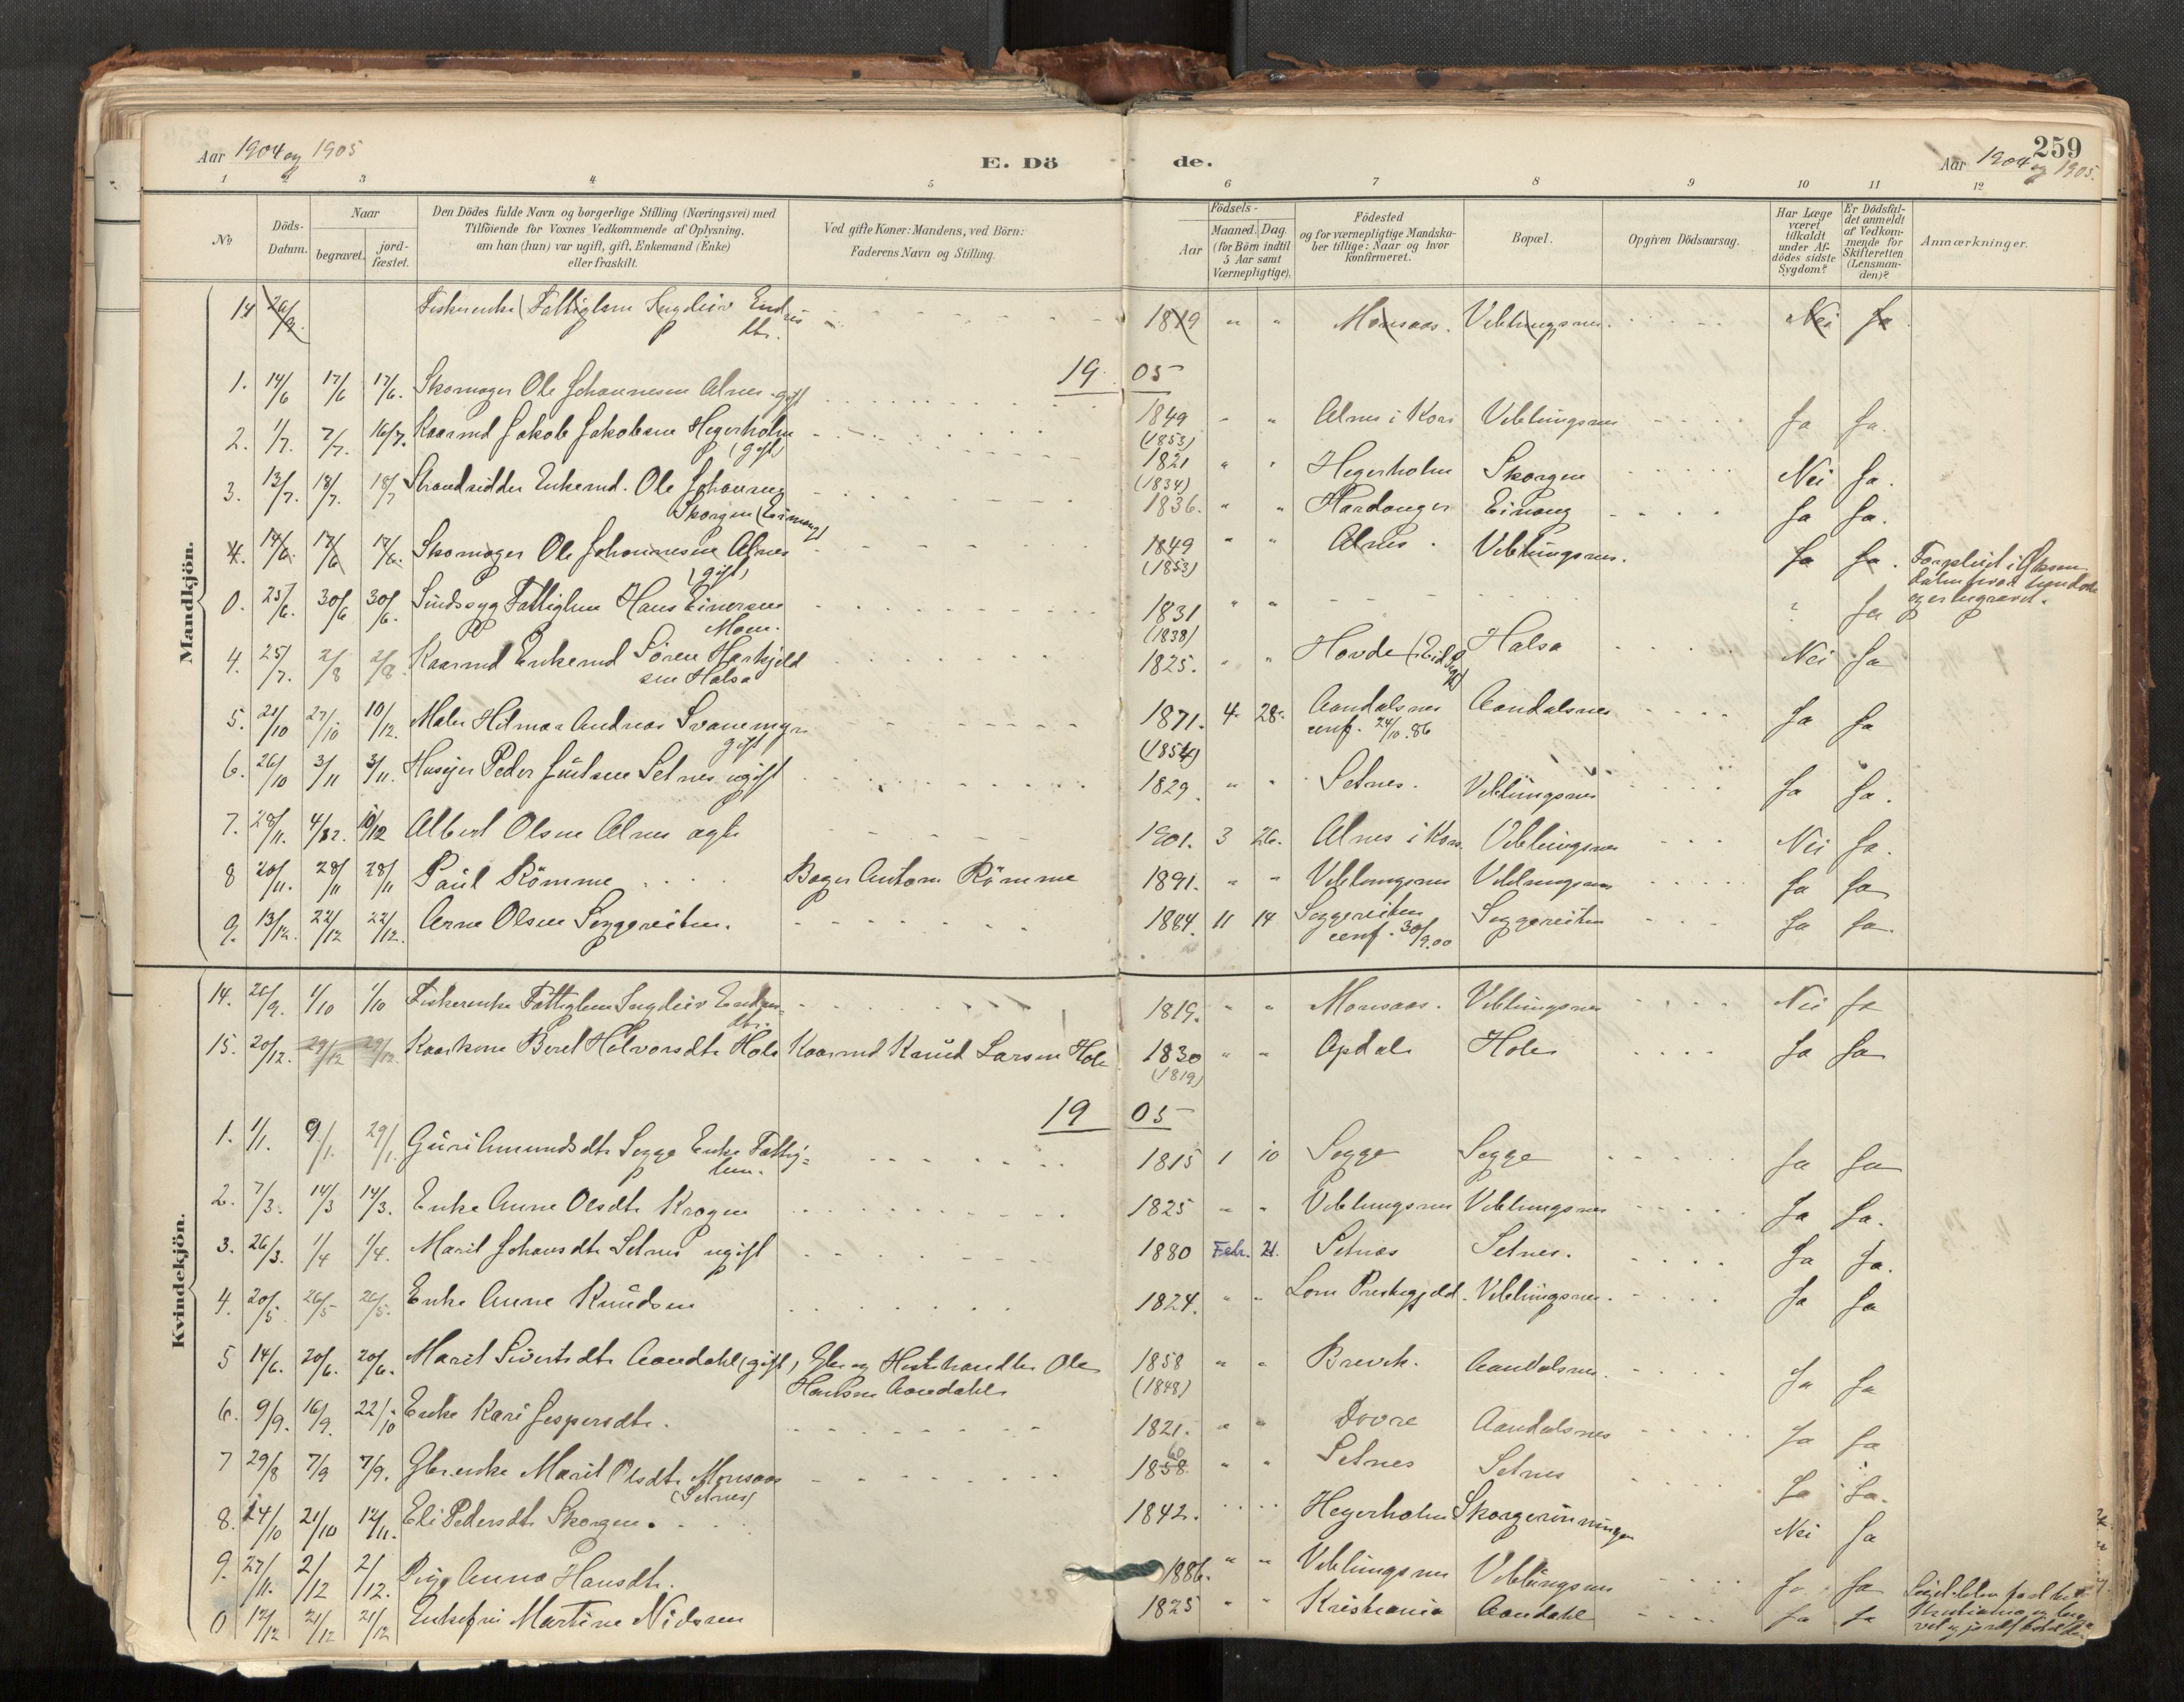 259
Aar 1904 og 1905
E. Dö de.
Aar 1904 og 1905.
1 2 3 4 5 6 7 8 9 10 11 12
No
Döds-Datum.
Naar
begravet.
jord-fæstet.
Den Dödes fulde Navn og borgerlige Stilling (Næringsvei) med
Tilföiende for Voxnes Vedkommende af Oplysning,
om han (hun) var ugift, gift, Enkemand (Enke)
eller fraskilt.
Ved gifte Koner: Mandens, ved Börn:
Faderens Navn og Stilling.
Födsels-
Aar
Maaned. Dag.
(for Börn indtil
5 Aar samt
Værnepligtige).
Födested
og for værnepligtige Mandska-
ber tillige: Naar og hvor
konfirmeret.
Bopæl.
Opgiven Dödsaarsag.
Har Læge
været
tilkaldt
under Af-
dödes sidste
Sygdom?
Er Dödsfal-
det anmeldt
af Vedkom-
mende for
Skifteretten
(Lensman-
den)?
Anmærkninger.
Mandkjön.
14 26/9. Fiskerenke (Fattiglem Ingeleiv Endres dtr. 1819 " " Monsaas. Veblungsnes. Nei Ja
1905
1. 14/6 17/6 17/6. Skomager Ole Johannesen Alnes gift 1849 (1853) " " Alnes i Kors Veblungsnes Ja Ja.
2. 1/7. 7/7. 16/7. Kaarmd Jakob Jakobsen Hegerholm (gift) 1821 (1834) " " Hegerholm Skorgen Nei Ja.
3. 13/7. 18/7. 18/7 Strandsidder Enkemd. Ole Johannes Skorgen (Einang) 1836. " " Hardanger Einang Ja Ja.
4. 14/6. 17/6 17/6. Skomager Ole Johannesen Alnes (gift) 1849 (1853) " " Alnes. Veblungsnes. Ja Ja.
0. 25/6. 30/6 30/6. Sindssyg Fattiglem Hans Einersen Moen. 1831 (1838) " " Ja
4. 25/7. 2/8 2/8. Kaarmd Enkemd Sören Hankjeld sen Halsa 1825. " " Hovde Halsa Nei Ja
5. 21/10 27/10 10/12. Maler Hilmar Andreas Svanemyr gift 1871. 4. 28. Aandalsnes conf. 24/10.86 Aandalsnes Ja Ja
6. 26/10 3/11 3/11. Husejer Peder Juulsen Setnes ugift (1854) 1829 " " Setnes. Veblungsnes Ja Ja.
7. 28/11. 4/12. 10/12 Albert Olsen Alnes agte 1901. 3 26. Alnes i Kors. Veblungsnes Nei Ja.
8 20/11. 28/11 28/11 Paul Römme Bager Anton Römme 1891. " " Veblungsnes Veblungsnes Ja Ja
9. 13/12. 22/12 22/12. Arne Olsen Soggereiten. 1884. 11 14 Soggereiten conf. 30/9.00 Soggereiten Ja Ja.
Kvindekjön.
14. 26/9. 1/10 1/10 Fiskerenke Fattiglem Ingeleiv Endres dtr. 1819. " " Monsaas. Veblungsnes Nei Ja
15. 20/12. 29/12 29/12. Kaarkone Beret Halvorsdtr Hole Kaarmd Knud Larsen Hole 1830 (1819) " " Opdal Hole Ja Ja
1905
1. 1/1. 9/1. 29/1. Guri Amundsdtr Sogge Enke Fattig= lem. 1815 1 10 Sogge Sogge Ja Ja
2. 7/3. 14/3 14/3. Enke Anne Olsdtr Krogen 1825 " " Veblungsnes Veblungsnes Ja Ja.
3. 26/3. 1/4 1/4. Marit Johansdtr Setnes ugift 1880 Febr. 21. Setnes Setnes. Ja Ja.
4. 20/5. 26/5 26/5. Enke Anne Knudsen 1824. " " Lom Prestegjeld. Veblungsnes. Ja Ja
5 14/6. 20/6. 20/6. Marit Sivertsdtr Aandahl (gift) Gbr og Hestehandler Ole Hansen Aandahl 1858 (1848) " " Brevik. Aandalsnes. Ja Ja
6. 9/9. 16/9. 22/10 Enke Kari Jespersdtr. 1821. " " Dovre Aandalsnes Ja Ja
7 29/8 7/9 7/9. Gbr.enke Marit Olsdtr Monsaas (Setnes) 1858 60 " " Setnes Setnes Ja Ja.
8. 14/10 21/10 12/11. Eli Pedersdtr Skorgen. 1842. Hegerholm Nei Ja
9. 27/11. 2/12 2/12. Pige Anna Hansdtr. 1886. " " Veblungsnes Veblungsnes Ja Ja
0 12/12 21/12 21/12 Enkefru Martine Nielsen 1825 " " Kristiania Aandahl Ja Ja